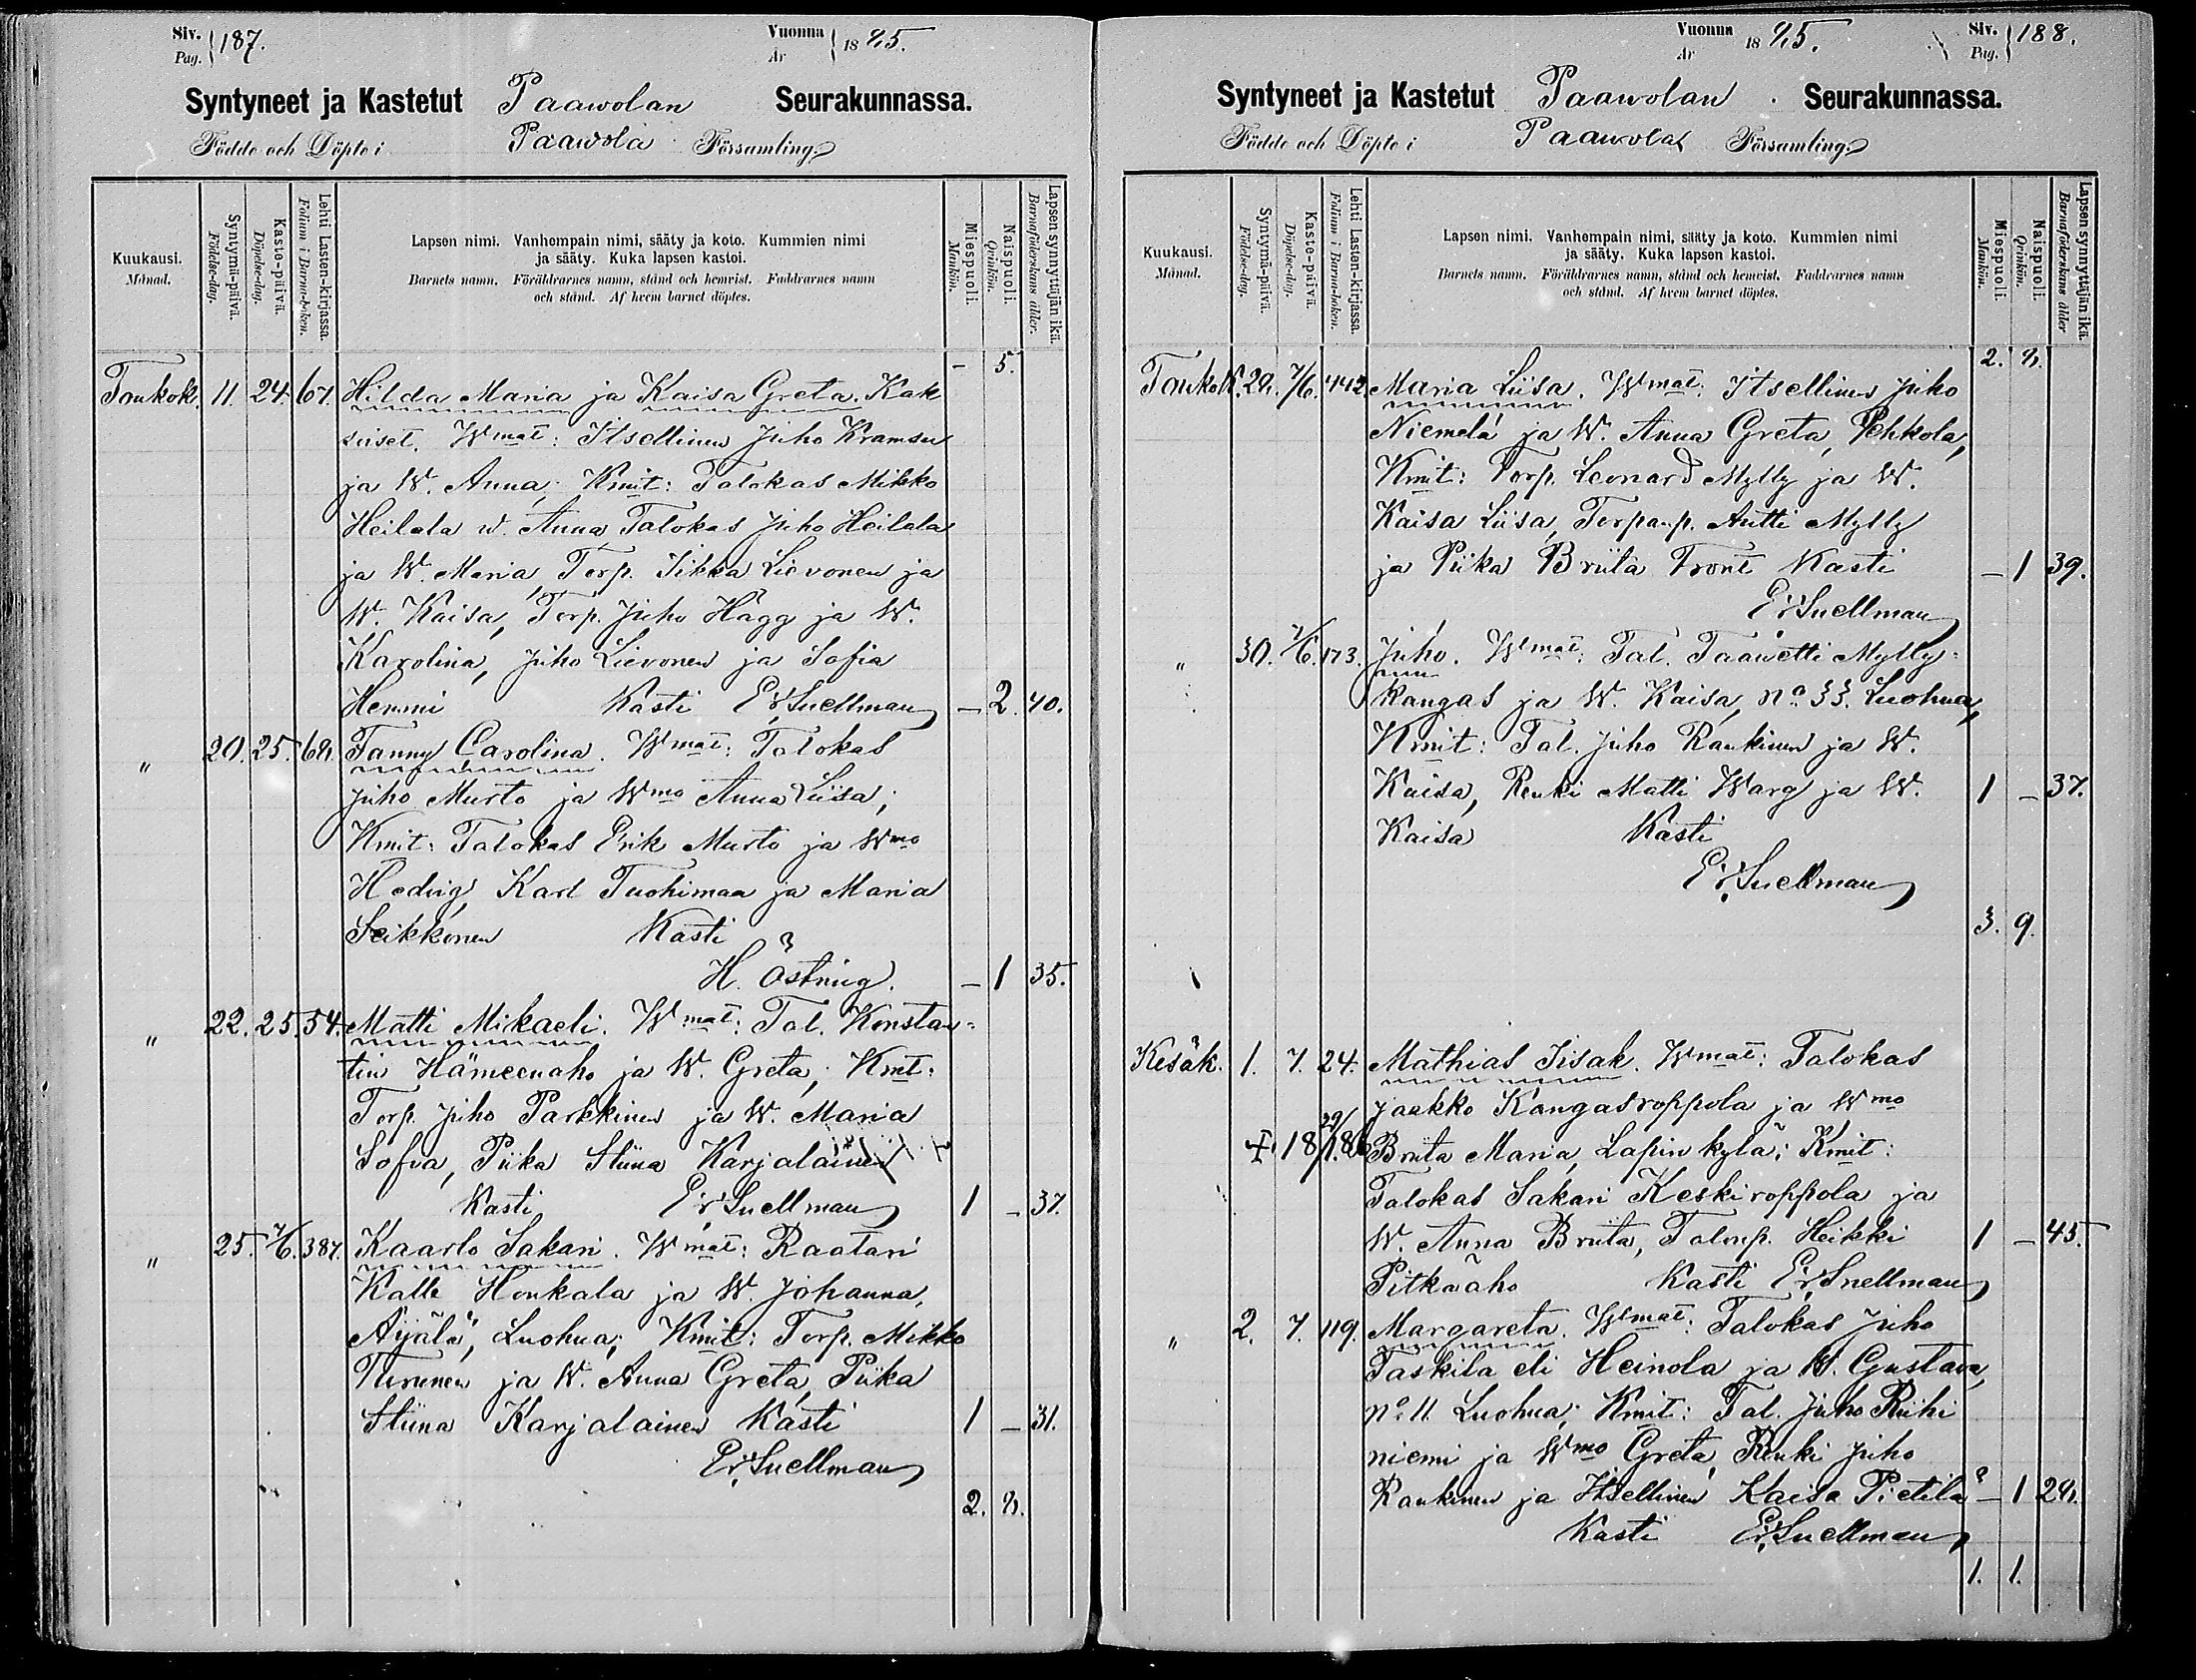 Siv. Pag. 187. Vuonna År 1885.
Syntyneet ja Kastetut Paawolan Seurakunnassa.
Födde och Döpte i Paawola Församling.
Kuukausi. Månad.
Syntymä-päivä. Födelse-dag.
Kaste-päivä. Döpelse-dag.
Lehti Lasten-kirjassa. Folium i Barna-boken.
Lapsen nimi. Vanhempain nimi, sääty ja koto. Kummien nimi
ja sääty. Kuka lapsen kastoi.
Barnets namn. Föräldrarnes namn, stånd och hemvist. Faddrarnes namn
och stånd. Af hvem barnet döptes.
Miespuoli. Mankön.
Naispuoli. Qvinkön.
Lapsen synnyttäjän ikä. Barnaföderskans ålder.
– 5.
Toukok. 11. 24. 67. Hilda Maria ja Kaisa Greta. Kak
siiset. Wmat: Itsellinen Juho Kramsu
ja W. Anna; Kmit: Talokas Mikko
Heilala w. Anna, Talokas Juho Heilala
ja W. Maria, Torp. Iikka Lievonen ja
W. Kaisa, Torp. Juho Hägg ja W.
Karolina, Juho Lievonen ja Sofia
Hemmi Kasti Er. Snellman – 2. 40.
" 20. 25. 68. Fanny Carolina. Wmat: Talokas
Juho Murto ja Wmo Anna Liisa;
Kmit: Talokas Erik Murto ja Wmo
Hedvig, Karl Tuohimaa ja Maria
Seikkonen Kasti
H. Östring. – 1 35.
" 22. 25. 54. Matti Mikaeli. Wmat: Tal. Konstan=
tin Hämeenaho ja W. Greta; Kmt:
Torp. Juho Parkkinen ja W. Maria
Sofia, Piika Stiina Karjalainen
Kasti Er. Snellman 1 – 37.
" 25. 7/6. 387. Kaarlo Sakari. Wmat: Raatari
Kalle Honkala ja W. Johanna,
Äijälä, Luohua; Kmit: Torp. Mikko
Turunen ja W. Anna Greta, Piika
Stiina Karjalainen Kasti 1 – 31.
Er. Snellman
2. 8.
Vuonna År 1885. Siv. Pag. 188.
Syntyneet ja Kastetut Paawolan Seurakunnassa.
Födde och Döpte i Paawola Församling.
Kuukausi. Månad.
Syntymä-päivä. Födelse-dag.
Kaste-päivä. Döpelse-dag.
Lehti Lasten-kirjassa. Folium i Barna-boken.
Lapsen nimi. Vanhempain nimi, sääty ja koto. Kummien nimi
ja sääty. Kuka lapsen kastoi.
Barnets namn. Föräldrarnes namn, stånd och hemvist. Faddrarnes namn
och stånd. Af hvem barnet döptes.
Miespuoli. Mankön.
Naispuoli. Qvinkön.
Lapsen synnyttäjän ikä. Barnaföderskans ålder
2. 8.
Toukok. 28. 7/6. 442. Maria Liisa. Wmat: Itsellinen Juho
Niemelä ja W. Anna Greta, Pehkola,
Kmit: Torp. Leonard Mylly ja W.
Kaisa Liisa, Torpanp. Antti Mylly
ja Piika Briita Kasti – 1 39.
Er. Snellman
" 30. 7/6. 173. Juho. Wmat: Tal. Taawetti Mylly=
kangas ja W. Kaisa, No 33. Luohua,
Kmit: Tal. Juho Raukinen ja W.
Kaisa, Renki Matti Warg ja W. 1 – 37.
Kaisa Kasti
Er. Snellman
3. 9.
Kesäk. 1. 7. 24. Mathias Iisak. Wmat: Talokas
Jaakko Kangasroppola ja Wmo
Briita Maria, Lapin kylä; Kmit:
Talokas Sakari Keskiroppola ja
W. Anna Briita, Talonp. Heikki 1 – 45.
Pitkäaho Kasti Er. Snellman
" 2. 7. 119. Margareta. Wmat: Talokas Juho
Taskila eli Heinola ja W. Gustava,
No 11. Luohua; Kmit: Tal. Juho Riihi
niemi ja Wmo Greta, Renki Juho
Raukinen ja Itsellinen Kaisa Pietilä – 1 28.
Kasti Er. Snellman
1. 1.